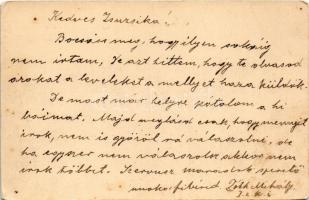 Kedves Zsuzsika!
Bocsáss meg, hogy ilyen sokáig
nem írtam, De azt hittem, hogy te olvasod
azokat a leveleket a mellyet haza küldök.
De most már helyre pótolom a hi
báimat. Majd meglásd csak, hogy mennyit
írok, nem is győzöl rá válaszolni, de
ha egyszer nem válaszolsz akkor nem
írok többet. Szervusz maradok szerető
unoka Tóth Mihály